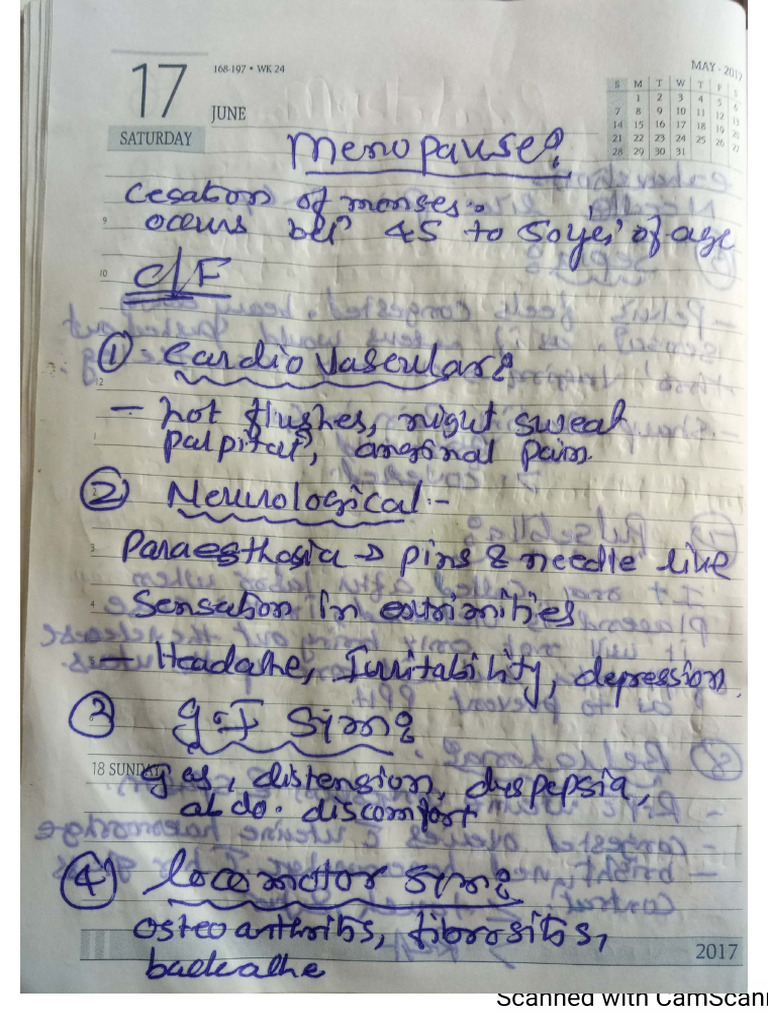 17
168-197 • WK 24
JUNE
SATURDAY
MAY - 2017
S M T W T F S
1 2 3 4 5 6
7 8 9 10 11 12 13
14 15 16 17 18 19 20
21 22 23 24 25 26 27
28 29 30 31
Menopause:
Cesation of menses.
occurs betn 45 to 50 yes' of age
C/F
① Cardio Vascular:
- hot flushes, night sweat
palpitatn, anginal pain.
② Neurological:-
Paraesthasia → pins & needle like
Sensation in extrimities
- Headache, Irritability, depression.
③ G.I Sym:
18 SUNDAY
gas, distension, dyspepsia,
abdo. discomfort
④ locomotor sym:
osteoarthritis, fibrositis,
backache
2017
Scanned with CamScann